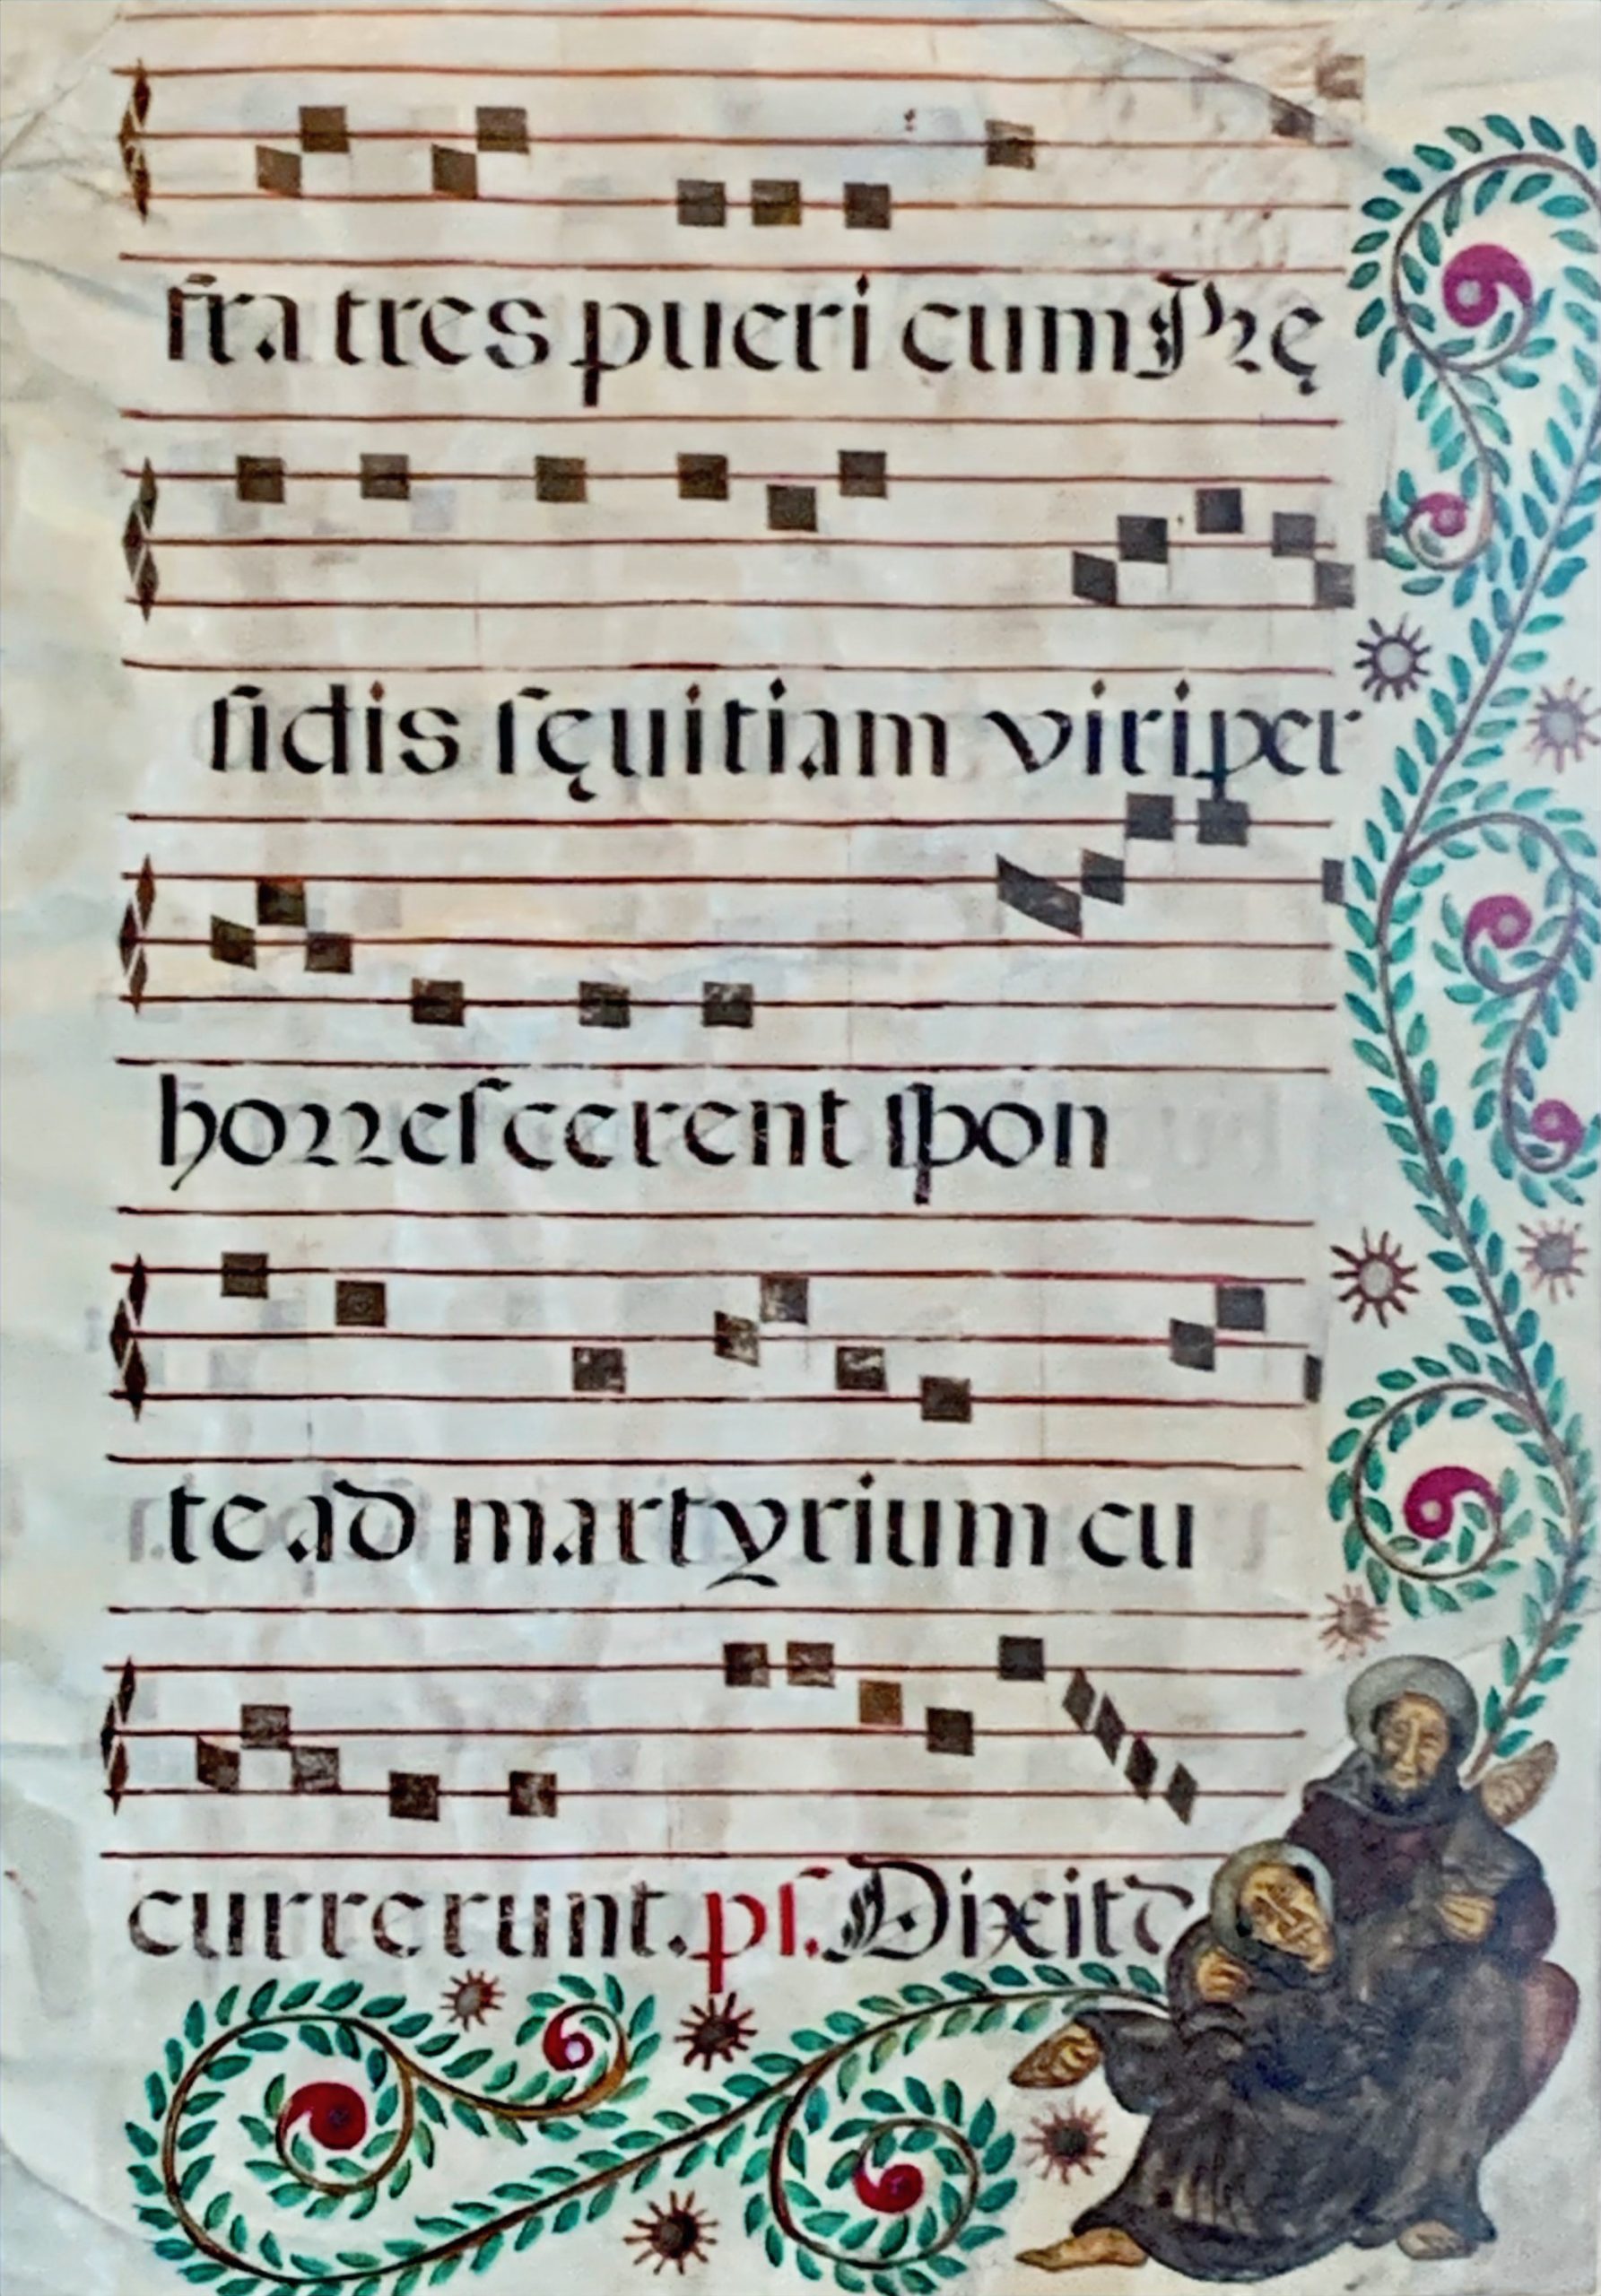 fra tres pueri cum Prę
sidis sęuitiam viri per
horrescerent spon
te ad martyrium cu
currerunt. ps. Dixit d